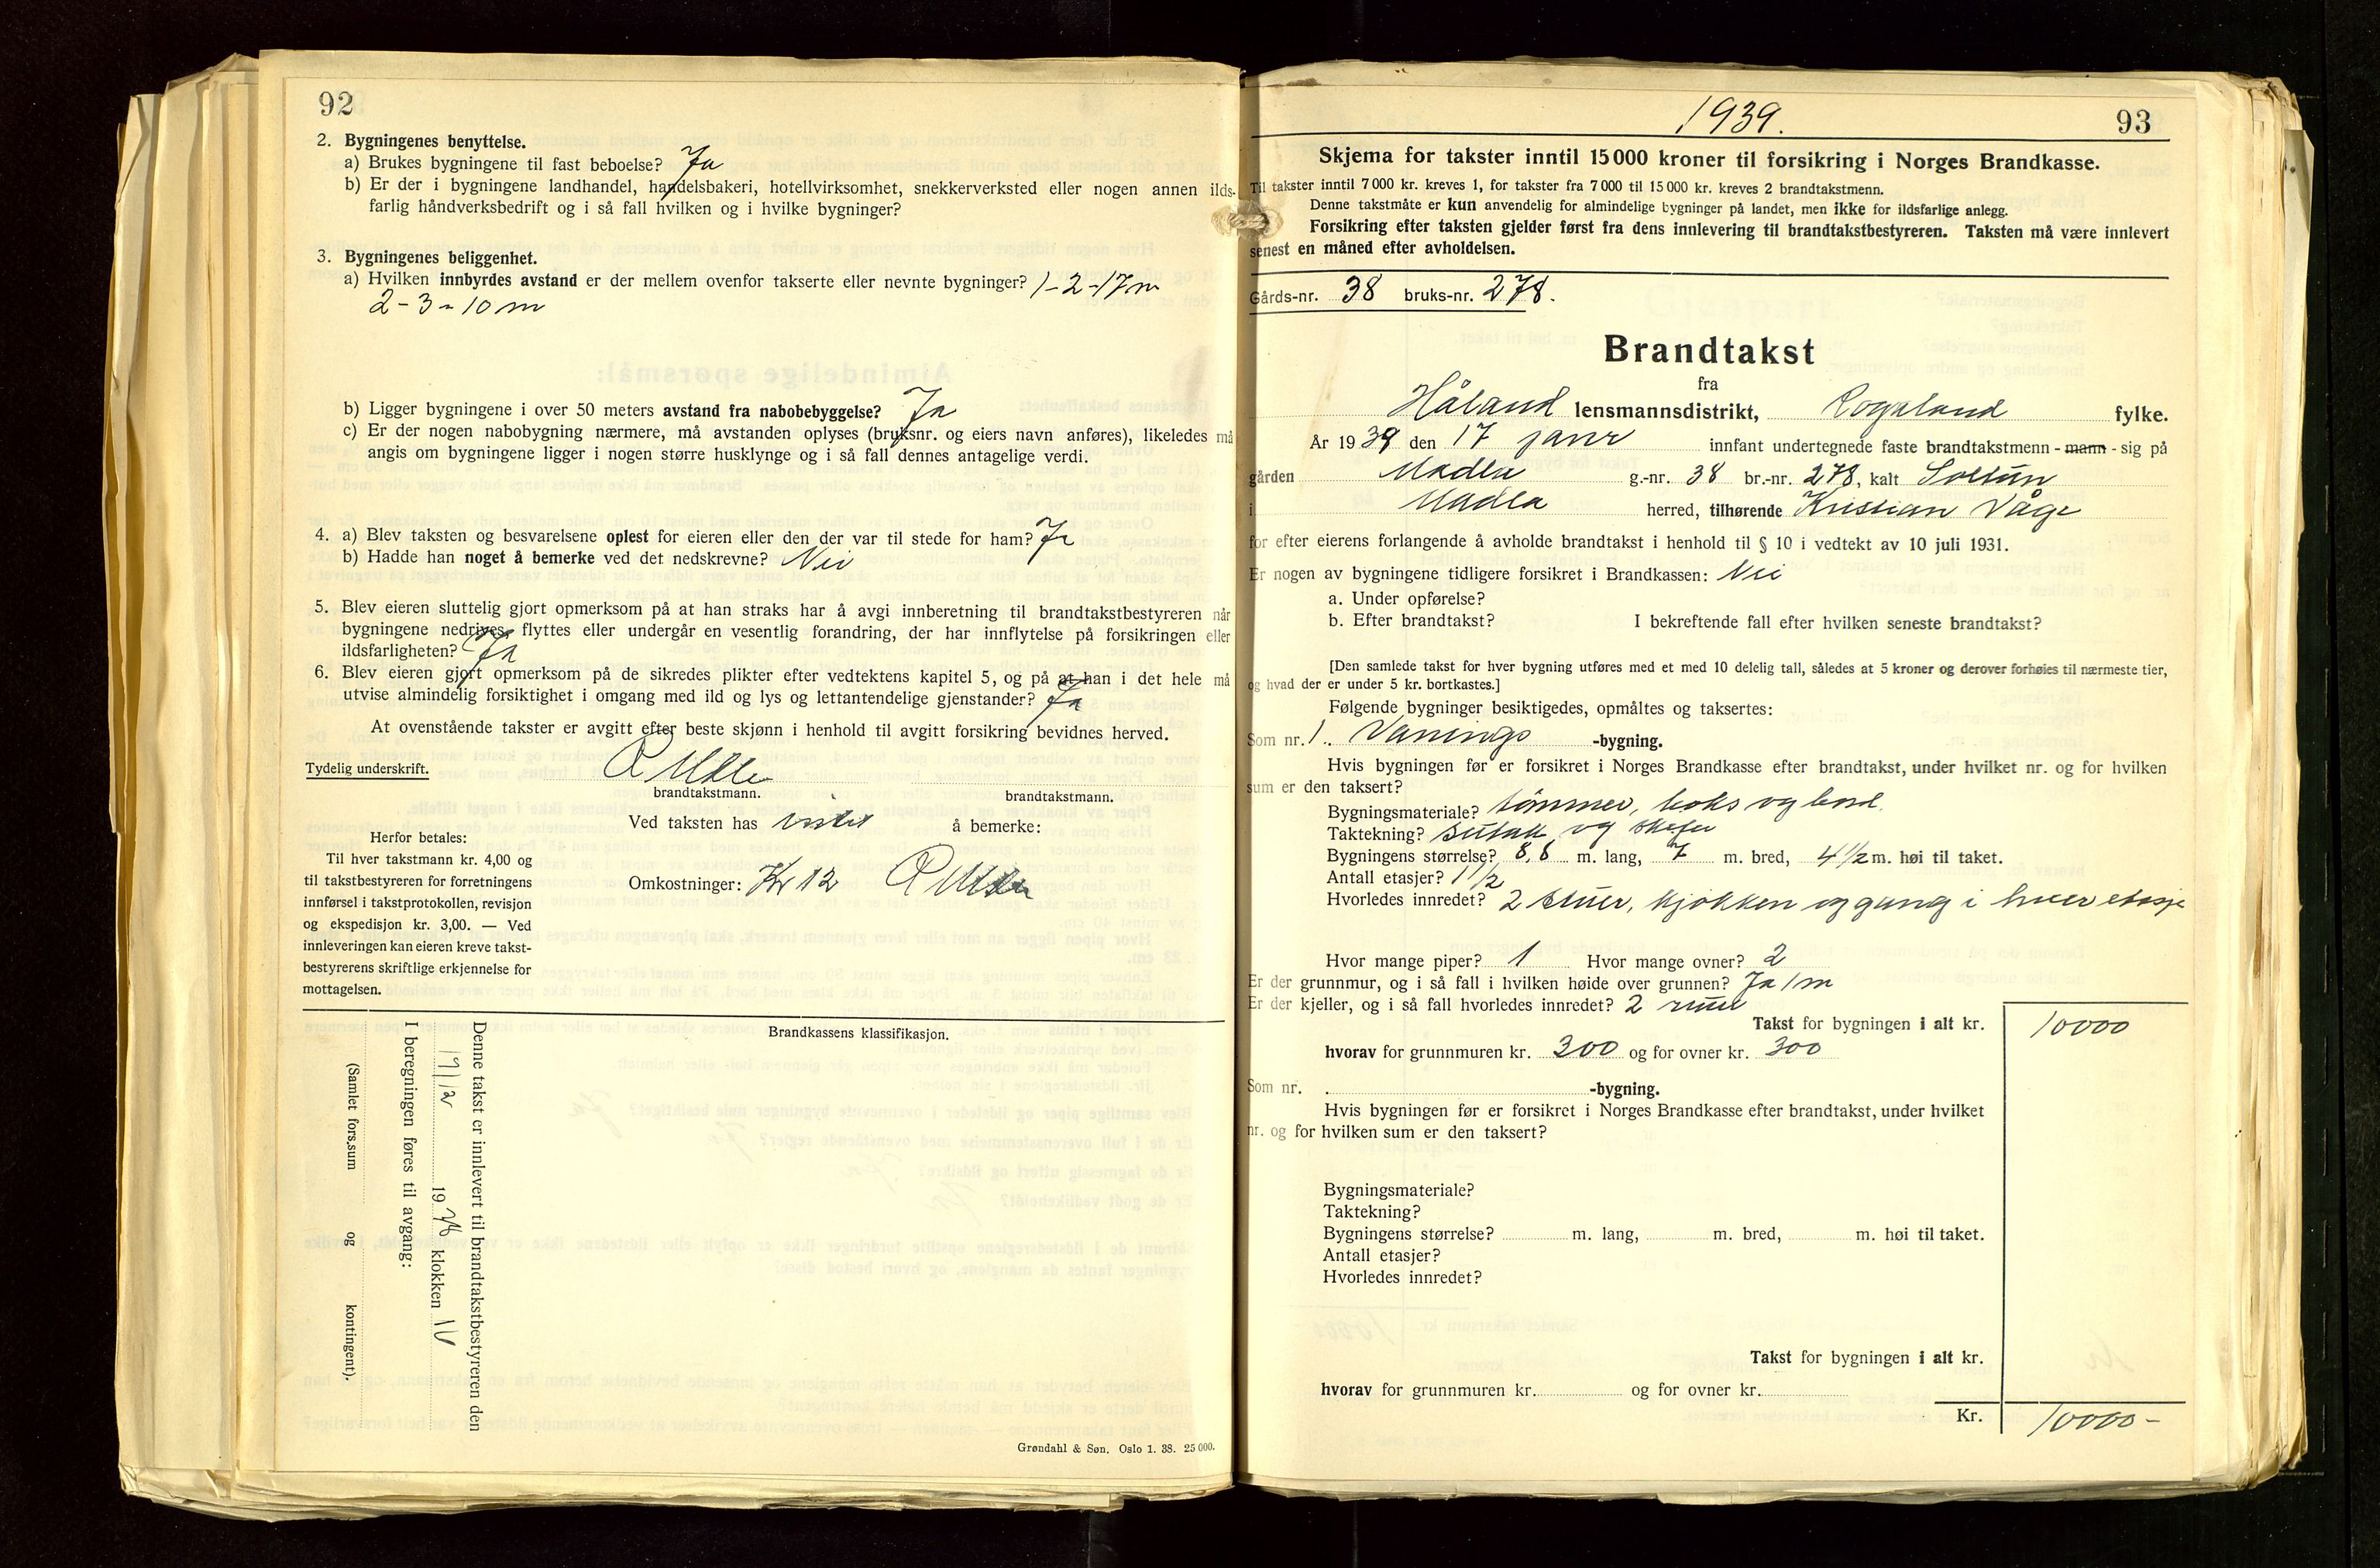 92
2. Bygningenes benyttelse.
a) Brukes bygningene til fast beboelse? Ja
b) Er der i bygningene landhandel, handelsbakeri, hotellvirksomhet, snekkerverksted eller nogen annen ilds-
farlig håndverksbedrift og i så fall hvilken og i hvilke bygninger?
3. Bygningenes beliggenhet.
a) Hvilken innbyrdes avstand er der mellem ovenfor takserte eller nevnte bygninger? 1-2-17m
2-3-10m
b) Ligger bygningene i over 50 meters avstand fra nabobebyggelse? Ja
c) Er der nogen nabobygning nærmere, må avstanden oplyses (bruksnr. og eiers navn anføres), likeledes må
angis om bygningene ligger i nogen større husklynge og i så fall dennes antagelige verdi.
4. a) Blev taksten og besvarelsene oplest for eieren eller den der var til stede for ham? Ja
b) Hadde han noget å bemerke ved det nedskrevne? Nei
5. Blev eieren sluttelig gjort opmerksom på at han straks har å avgi innberetning til brandtakstbestyreren når
bygningene nedrives, flyttes eller undergår en vesentlig forandring, der har innflytelse på forsikringen eller
ildsfarligheten? Ja
6. Blev eieren gjort opmerksom på de sikredes plikter efter vedtektens kapitel 5, og på at han i det hele må
utvise almindelig forsiktighet i omgang med ild og lys og lettantendelige gjenstander? Ja
At ovenstående takster er avgitt efter beste skjønn i henhold til avgitt forsikring bevidnes herved.
Tydelig underskrift.
brandtakstmann. brandtakstmann.
Ved taksten has intet å bemerke:
Herfor betales:
Til hver takstmann kr. 4,00 og
til takstbestyreren for forretningens
innførsel i takstprotokollen, revisjon
og ekspedisjon kr. 3,00. — Ved
innleveringen kan eieren kreve takst-
bestyrerens skriftlige erkjennelse for
mottagelsen.
Omkostninger: Kr 12
Brandkassens klassifikasjon.
Denne takst er innlevert til brandtakstbestyreren den
19/12 1938 klokken
I beregningen føres til avgang:
(Samlet fors.sum og kontingent).
Grøndahl & Søn. Oslo 1. 38. 25 000.
1939.
93
Skjema for takster inntil 15 000 kroner til forsikring i Norges Brandkasse.
Til takster inntil 7 000 kr. kreves 1, for takster fra 7 000 til 15 000 kr. kreves 2 brandtakstmenn.
Denne takstmåte er kun anvendelig for almindelige bygninger på landet, men ikke for ildsfarlige anlegg.
Forsikring efter taksten gjelder først fra dens innlevering til brandtakstbestyreren. Taksten må være innlevert
senest en måned efter avholdelsen.
Gårds-nr. 38 bruks-nr. 278.
Brandtakst
fra
Håland lensmannsdistrikt, Rogaland fylke.
År 1939 den 17 janr innfant undertegnede faste brandtakstmenn - mann - sig på
gården Madla g.-nr. 38 br.-nr. 278, kalt Soltun
i Madla herred, tilhørende Kristian Våge
for efter eierens forlangende å avholde brandtakst i henhold til § 10 i vedtekt av 10 juli 1931.
Er nogen av bygningene tidligere forsikret i Brandkassen: Nei
a. Under opførelse?
b. Efter brandtakst? I bekreftende fall efter hvilken seneste brandtakst?
[Den samlede takst for hver bygning utføres med et med 10 delelig tall, således at 5 kroner og derover forhøies til nærmeste tier,
og hvad der er under 5 kr. bortkastes.]
Følgende bygninger besiktigedes, opmåltes og taksertes:
Som nr. 1. Vånings -bygning.
Hvis bygningen før er forsikret i Norges Brandkasse efter brandtakst, under hvilket nr. og for hvilken
sum er den taksert?
Bygningsmateriale? tømmer, boks og bord
Taktekning? sutak og skifer
Bygningens størrelse? 8,8 m. lang, 7 m. bred, 4½ m. høi til taket.
Antall etasjer? 1½
Hvorledes innredet? 2 stuer, kjøkken og gang i hver etasje
Hvor mange piper? 1 Hvor mange ovner? 2
Er der grunnmur, og i så fall i hvilken høide over grunnen? Ja 1m
Er der kjeller, og i så fall hvorledes innredet? 2 rum
Takst for bygningen i alt kr. 10000
hvorav for grunnmuren kr. 300 og for ovner kr. 300
Som nr. . -bygning.
Hvis bygningen før er forsikret i Norges Brandkasse efter brandtakst, under hvilket
nr. og for hvilken sum er den taksert?
Bygningsmateriale?
Taktekning?
Bygningens størrelse? m. lang, m. bred, m. høi til taket.
Antall etasjer?
Hvorledes innredet?
Takst for bygningen i alt kr.
hvorav for grunnmuren kr. og for ovner kr.
Kr. 10000-